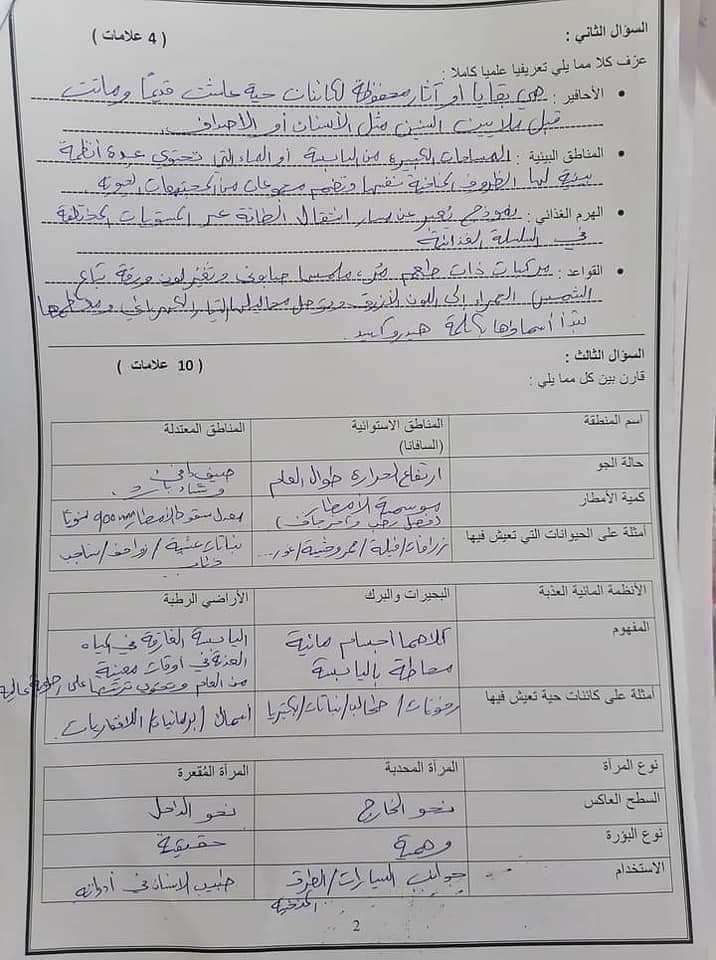 السؤال الثاني : ( 4 علامات )
عرّف كلا مما يلي تعريفيا علميا كاملا :
• الأحافير : هي بقايا أو آثار محفوظة لكائنات حية عاشت قديمًا وماتت
قبل ملايين السنين مثل الأسنان أو الأصداف.
• المناطق البيئية : المساحات الكبيرة من اليابسة أو الماء التي تحتوي عدة أنظمة
بيئية لها الظروف المناخية نفسها وتضم مجموعات من المجتمعات الحيوية
• الهرم الغذائي : نموذج يُعبر عن مسار انتقال الطاقة عبر المستويات المختلفة
في السلسلة الغذائية
• القواعد : مركبات ذات طعم مُر، ملمسها صابوني وتغير لون ورقة تباع
الشمس الحمراء إلى اللون الأزرق وتوصل محاليلها التيار الكهربائي ومعظمها
تبدأ أسماؤها بكلمة هيدروكسيد.
السؤال الثالث : ( 10 علامات )
قارن بين كل مما يلي :
اسم المنطقة المناطق الاستوائية المناطق المعتدلة
(السافانا)
حالة الجو ارتفاع الحرارة طوال العام صيف دافئ
وشتاء بارد.
كمية الأمطار موسمية الأمطار معدل سقوط الأمطار 900 mm سنويًا
(فصل رطب وآخر جاف)
أمثلة على الحيوانات التي تعيش فيها زرافات/فيلة/حمر وحشية/ نباتات عشبية / زواحف/سناجب
الأنظمة المائية العذبة البحيرات والبرك الأراضي الرطبة
المفهوم كلاهما أجسام مائية اليابسة الغارقة في المياه
محاطة باليابسة العذبة في أوقات معينة
من العام وتحتوي تربتها على رطوبة عالية
أمثلة على كائنات حية تعيش فيها طحالب/نباتات/بكتيريا أسماك / برمائيات/ اللافقاريات.
نوع المرآة المرآة المحدبة المرآة المُقعرة
السطح العاكس نحو الخارج نحو الداخل
نوع البؤرة وهمية حقيقية
الاستخدام جوانب السيارات/الطرق طبيب الأسنان في أدواته
2